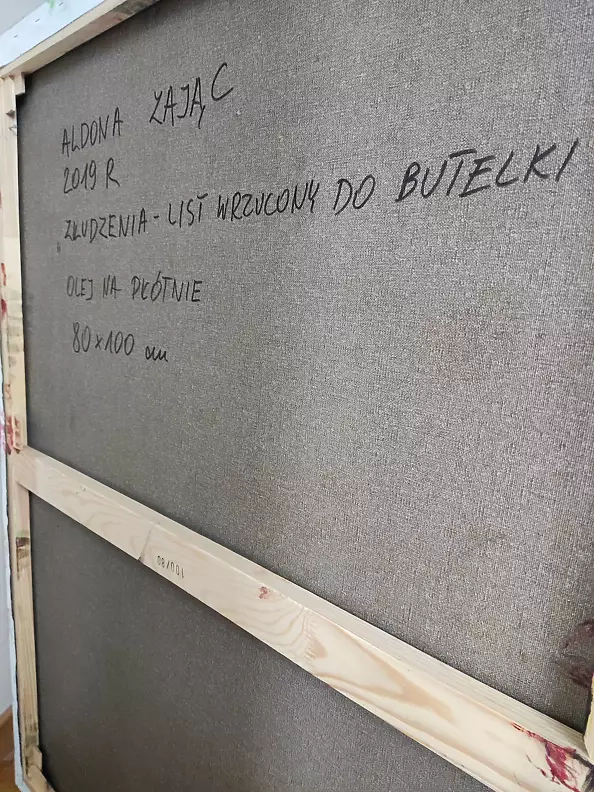 ALDONA ZAJĄC
2019 R
ZŁUDZENIA - LIST WRZUCONY DO BUTELKI
OLEJ NA PŁÓTNIE
80x100 cm
100/80